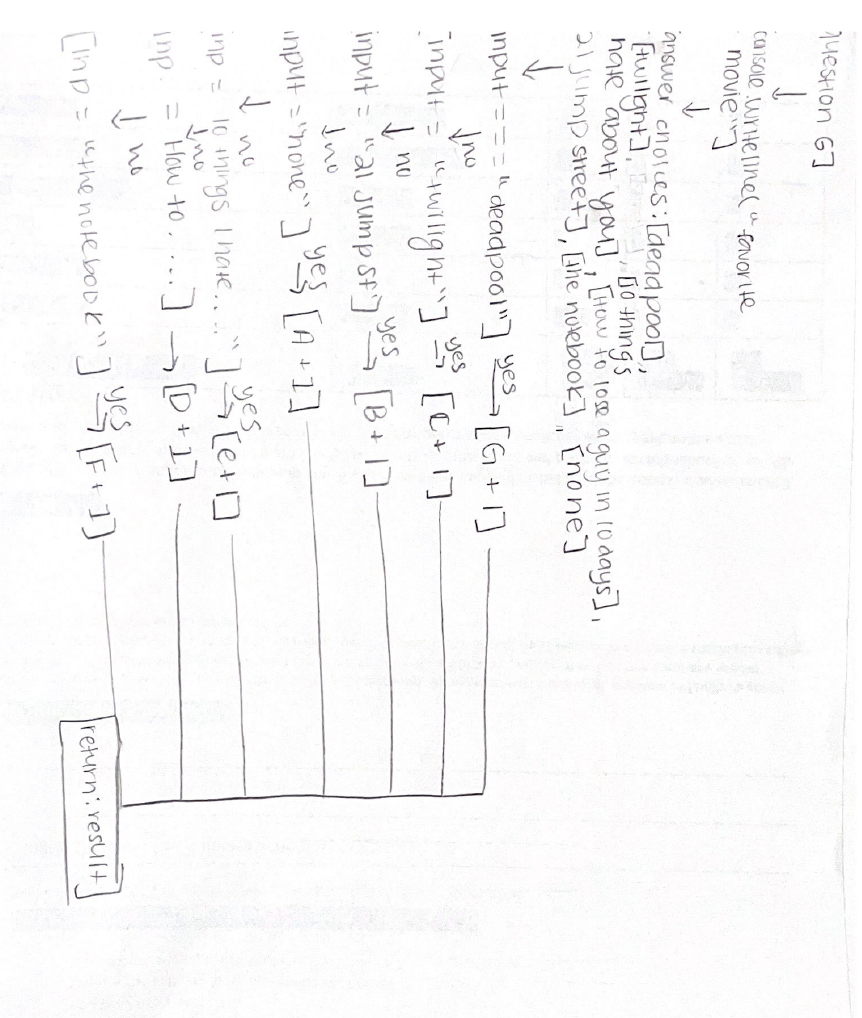 Question 6]
↓
console.writeline("favorite
movie:"]
↓
answer choices: [deadpool],
[twilight], [10 things
hate about you], [How to lose a guy in 10 days],
21 jump street], [the notebook], [none]
↓
input === "deadpool"] yes → [G + 1]
↓ no
input = "twilight"] yes → [C + 1]
↓ no
input = "21 jump st"] yes → [B + 1]
↓ no
input = "none"] yes → [A + 1]
↓ no
inp = 10 things I hate..."] yes → [e + 1]
↓ no
inp. = How to.....] → [D + 1]
↓ no
[inp = "the notebook"] yes → [F + 1]
[return: result]